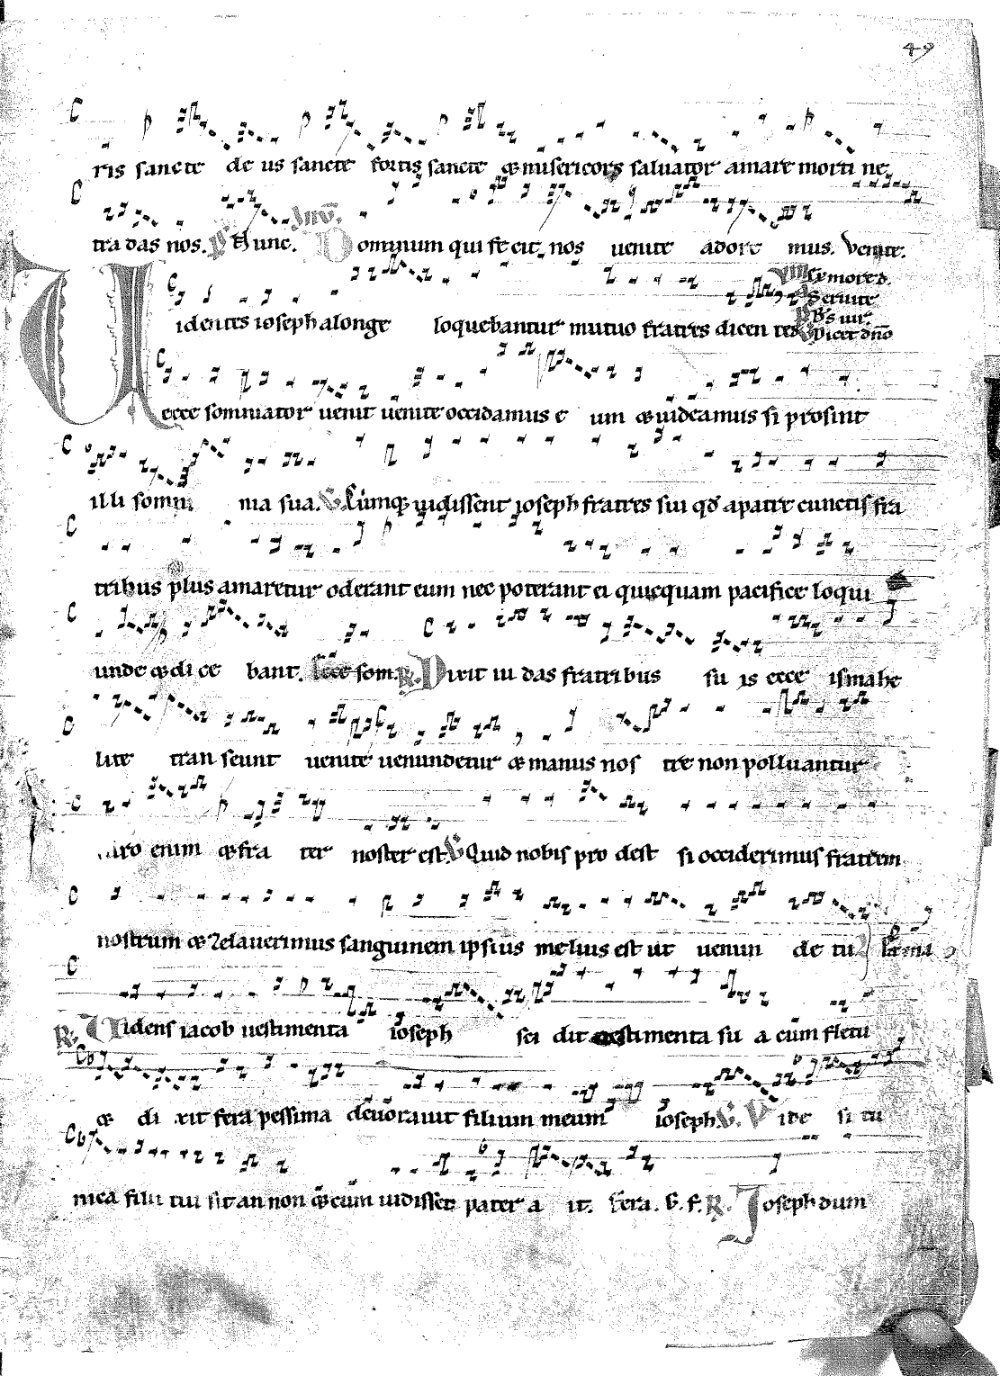 49
ris sancte de us sancte fortis sancte & misericors saluator amare morti ne
tra das nos. P Hunc. Inv. Dominum qui fe cit nos uenite adore mus. Venite.
Seruite
Uidentes ioseph alonge loquebantur mutuo fratres dicen tes
ecce somniator uenit uenite occidamus e um & uideamus si prosint
illi somni nia sua. V Cumq; uidissent ioseph fratres sui qd apatre cunctis fra
tribus plus amaretur oderant eum nec poterant ei quicquam pacifice loqui
unde & di ce bant. Ecce som. R. Dixit iu das fratribus su is ecce ismahe
lite tran seunt uenite uenundetur & manus nos tre non polluantur
caro enim & fra ter noster est. V Quid nobis pro dest si occiderimus fratrem
nostrum & celauerimus sanguinem ipsius melius est ut uenun de tur
R. Uidens iacob uestimenta ioseph sci dit uestimenta su a cum fletu
& di xit fera pessima deuorauit filium meum ioseph. V. Vide si tu
nica filii tui sit an non & cum uidisset pater a it. Fera. V. F. R. Joseph dum